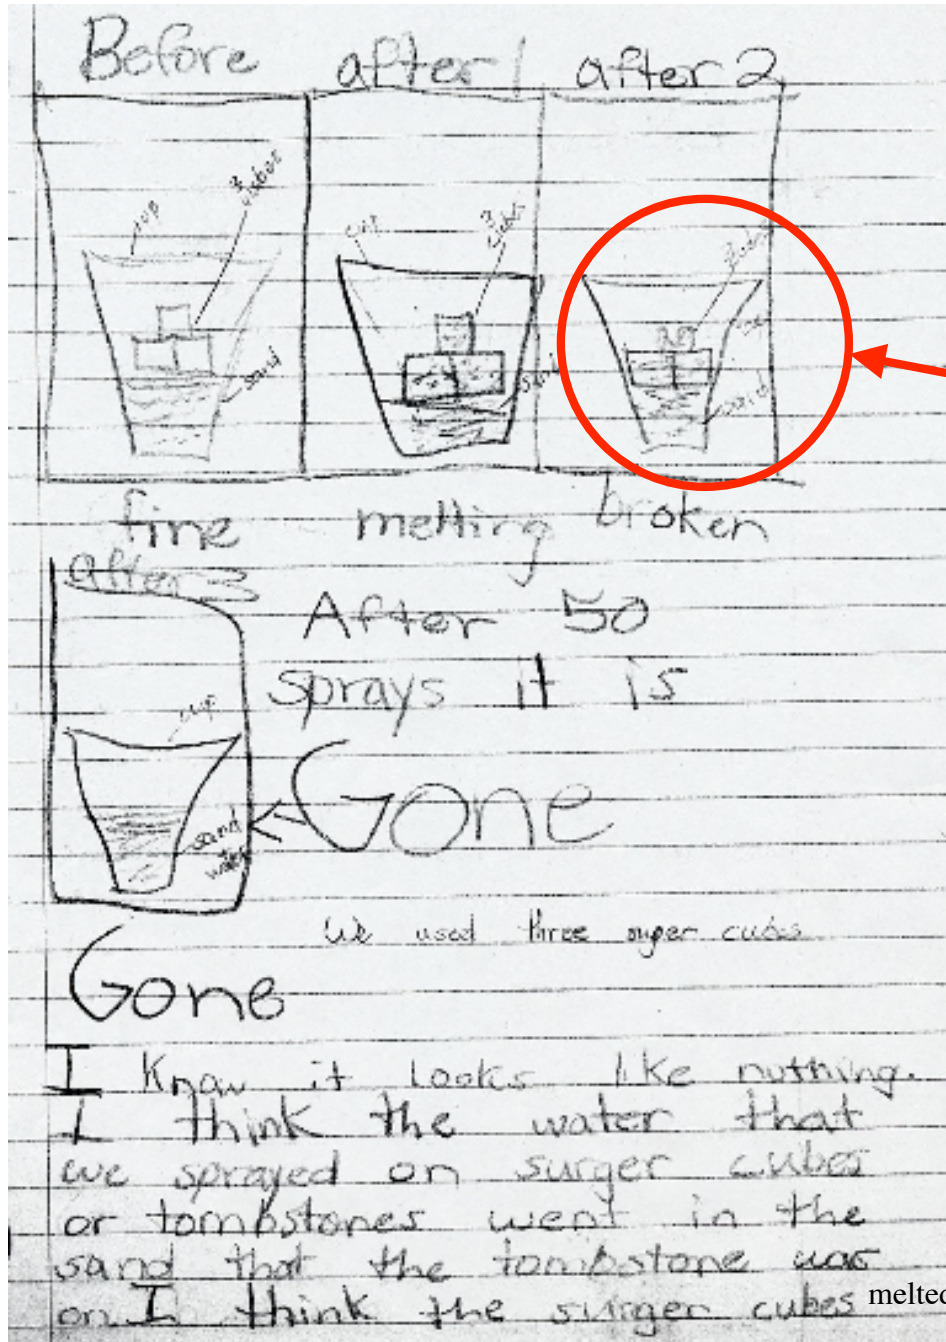 Before after 1 after 2
cup 3 cubes cup 3 cubes cubes cup
sand sand sand
fine melting broken
after 3
After 50
sprays it is
cup
Gone
sand
water
We used three suger cubes
Gone
I Know it looks like nuthing.
I think the water that
we sprayed on surger cubes
or tombstones went in the
sand that the tombstone was
on I think the surger cubes melted